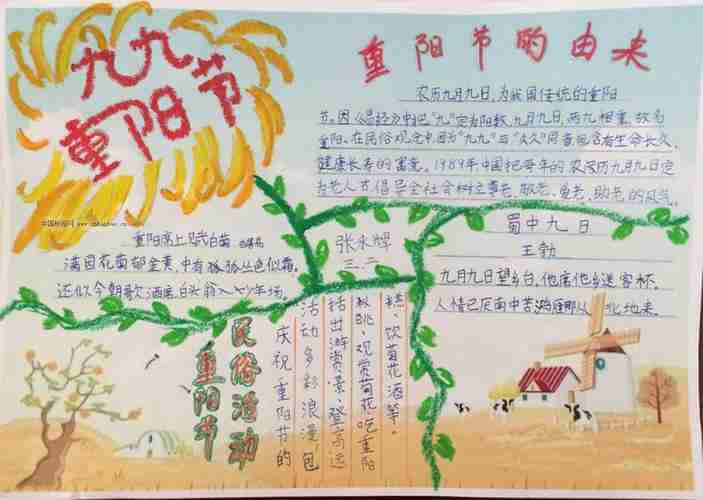 九九
重阳节
重阳节的由来
农历九月九日,为我国传统的重阳
节。因《易经》中把"九"定为阳数,九月九日,两九相重,故名
重阳。在民俗观念中因为"九九"与"久久"同音包含有生命长久、
健康长寿的寓意。1989年中国把每年的农历九月九日定
为老人节倡导全社会树立尊老、敬老、爱老、助老的风气。
重阳席上赋白菊
满园花菊郁金黄,中有孤丛色似霜。
还似今朝歌酒席,白头翁入少年场。
张永辉
三.二
蜀中九日
王勃
九月九日望乡台,他席他乡送客杯。
人情已厌南中苦,鸿雁那从北地来。
民俗活动
重阳节
庆祝重阳节的
活动多彩浪漫包
括出游赏景、登高远
眺、观赏菊花吃重阳
糕、饮菊花酒等。